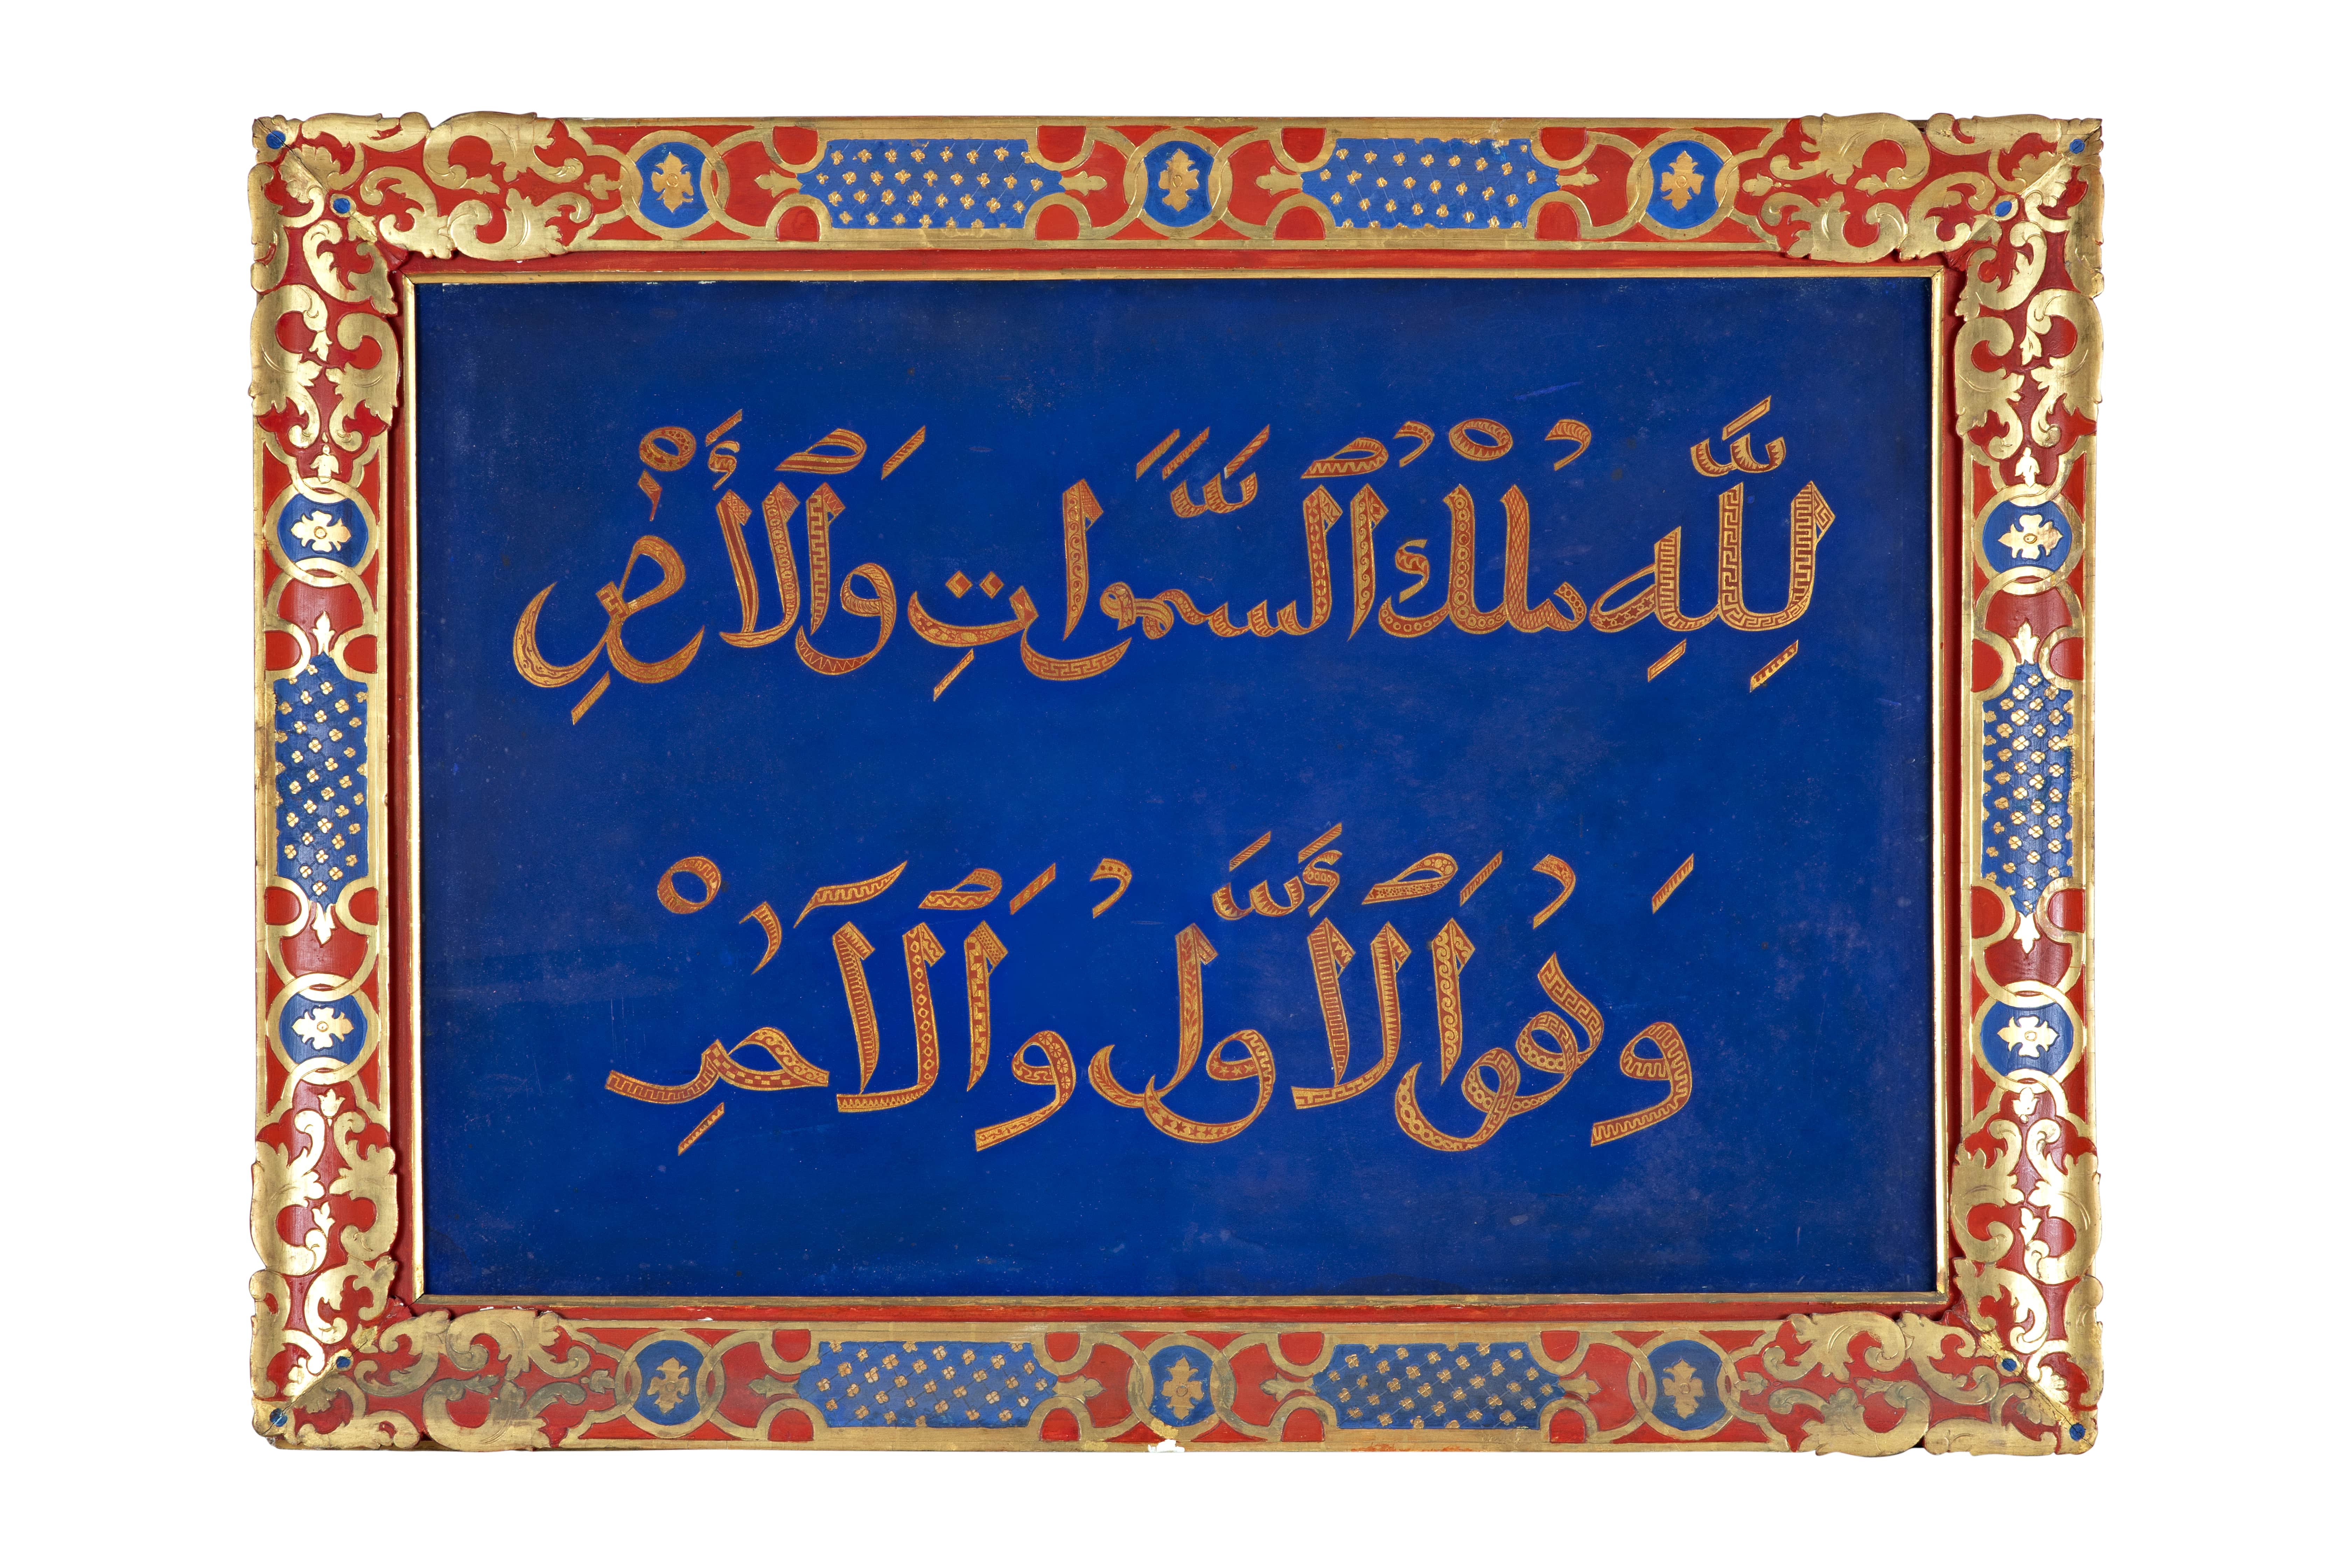 لِلَّهِ مُلْكُ ٱلسَّمَٰوَاتِ وَٱلْأَرْضِ
وَهُوَ ٱلْأَوَّلُ وَٱلْآخِرْ